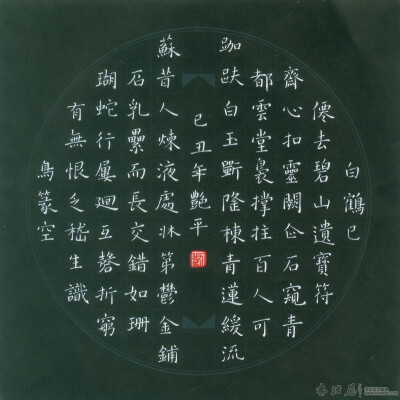 白鶴已
僊去碧山遺寶符
齋心扣靈闕企石窺青
都雲堂裊撐拄百人可
跏趺白玉斲隆棟青蓮緩流
蘇昔人煉液處牀第鬱金鋪
石乳纍而長交錯如珊
瑚蛇行屢迴互磬折窮
有無恨乏嵇生識
鳥篆空
己丑年艷平